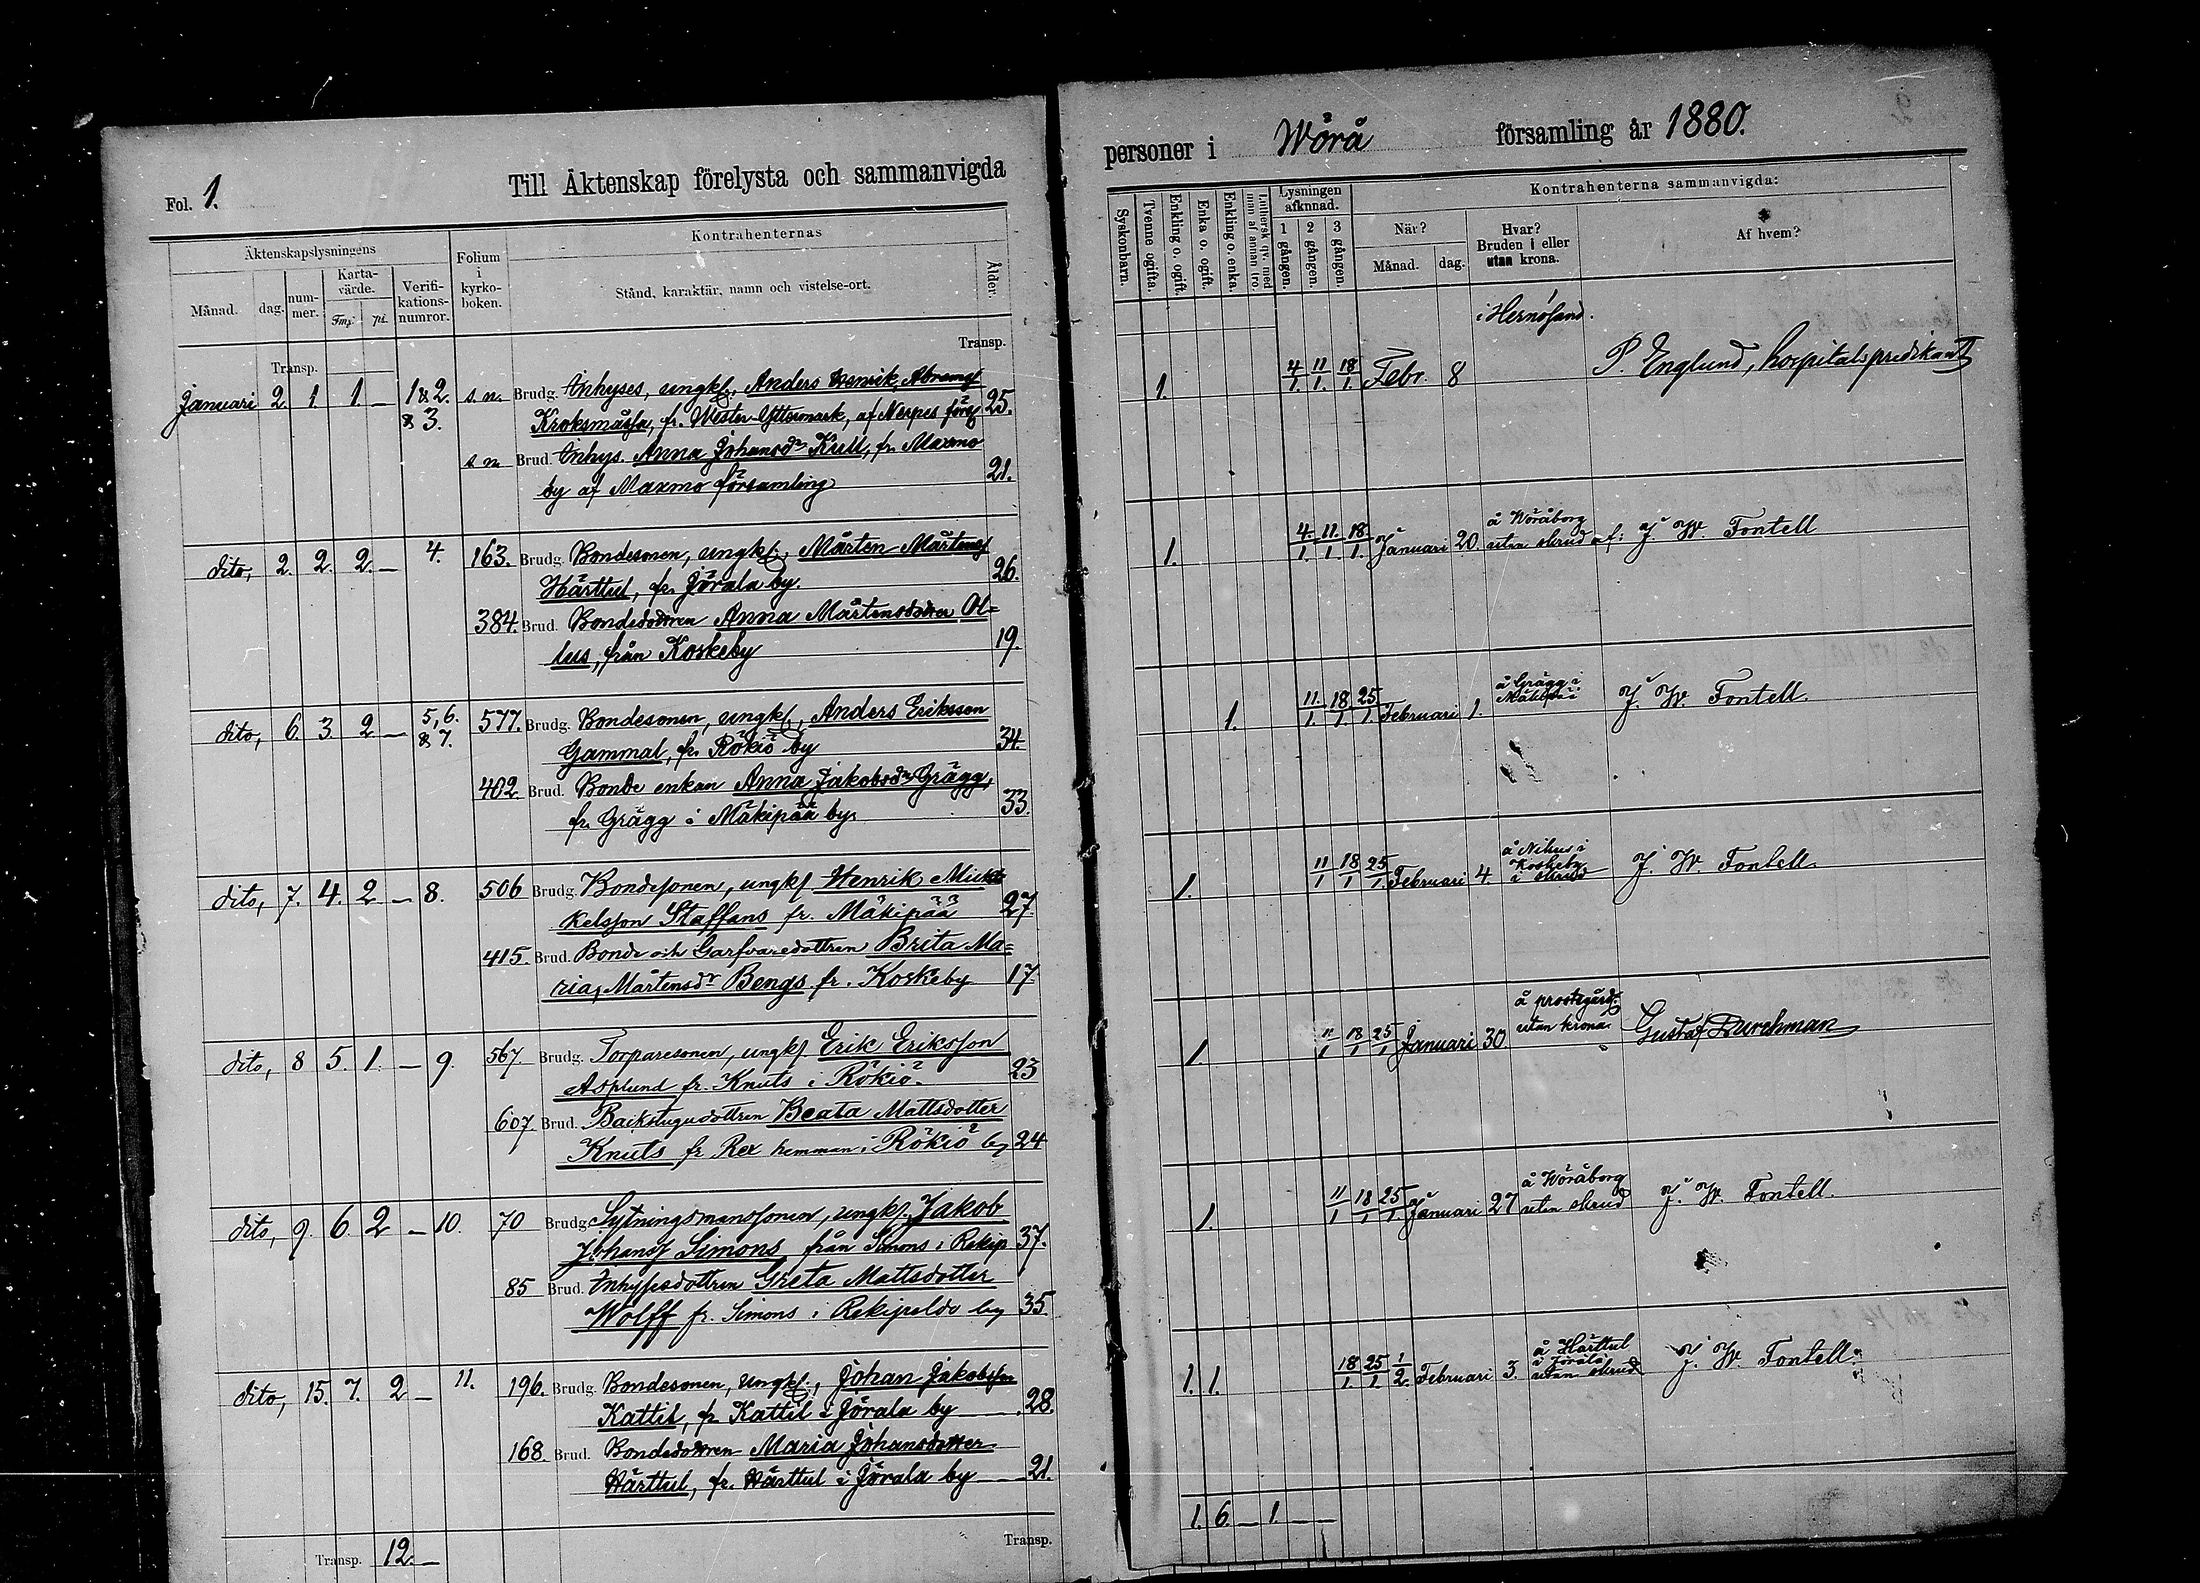 Fol. 1.
Till Äktenskap förelysta och sammanvigda
Äktenskapslysningens
Månad.
dag.
num-
mer.
Karta-
värde.
Fmp
pi.
Verifi-
kations-
numror.
Folium
i
kyrko-
boken.
Kontrahenternas
Stånd, karaktär, namn och vistelse-ort.
Ålder.
Transp.
Transp.
Januari 2. 1. 1. — 1 & 2. s n. Brudg. Inhyses, ungkl, Anders Henrik Abramss
& 3. Kroksmässa, fr. Wester Yttermark, af Nerpes förs 25.
s n Brud. Inhys. Anna Johansdr Krell, fr. Maxmo
by af Maxmo församling 21.
dito, 2. 2. 2. — 4. 163. Brudg. Bondesonen, ungkl, Mårten Mårtenss
Härttul, fr. Jörala by. 26.
384. Brud. Bondedottren Anna Mårtensdotter Ol=
lus, från Koskeby 19.
dito, 6. 3. 2 — 5, 6. 577. Brudg. Bondesonen, ungkl, Anders Eriksson
& 7. Gammal, fr. Rökiö by 34
402. Brud. Bonde enkan Anna Jakobsdr Grägg,
fr. Grägg i Mäkipää by. 33.
dito, 7. 4. 2 — 8. 506 Brudg. Bondesonen, ungkl Henrik Mick
kelsson Staffans fr. Mäkipää 27.
415. Brud. Bonde och Garfvaredottren Brita Ma=
ria, Mårtensdr Bengs fr. Koskeby 17.
dito, 8 5. 1. — 9. 567 Brudg. Torparesonen, ungkl Erik Eriksson
Asplund fr. Knuts i Rökiö. 23
607 Brud. Backstugudottren Beata Mattsdotter
Knuts fr Rex hemman i Rökiö by 24
dito, 9. 6. 2 — 10. 70 Brudg. Sytningsmanssonen, ungkl. Jakob
Johanss Simons från Simons i Rekip 37.
85 Brud. Inhysesdottren Greta Mattsdotter
Wolff fr. Simons i Rekipeldo by 35
dito, 15. 7. 2 — 11. 196. Brudg. Bondesonen, ungkl., Johan Jakobsson
Kattil, fr Kattil i Jörala by 28.
168. Brud. Bondedottren Maria Johansdotter
Härttul, fr. Härttul i Jörala by 21.
Transp. 12. —
Transp.
personer i Wörå församling år 1880.
Syskonbarn.
Tvenne ogifta.
Enkling o. ogift.
Enka o. ogift.
Enkling o. enka.
Luthersk qv. med
man af annan tro.
Lysningen
afkunnad.
1 gången.
2 gången.
3 gången.
Kontrahenterna sammanvigda:
När?
Månad.
dag.
Hvar?
Bruden i eller
utan krona.
Af hvem?
i Hernösand.
1. 4/1. 11/1. 18/1. Febr. 8 P. Englund, hospitalspredikant
å Wöråborg
1. 4./1. 11./1. 18./1. Januari 20. utan skrud af: J. W. Fontell
å Grägg i
Mäkipää
1. 11./1. 18/1. 25/1. Februari 1. J. W. Fontell
å Nikus i
Koskeby
i skrud
1. 11/1 18/1 25/1. Februari 4. J. W. Fontell
å prostegård.
utan krona.
1. 11/1 18/1 25/1 Januari 30 Gustaf Durchman
å Wöråborg
1. 11/1 18/1 25/1 Januari 27 utan skrud J. W. Fontell.
å Härttul
i Jörala
utan skrud
1. 1. 18/1. 25/1. 1/2. Februari 3. J. W. Fontell.
1. 6. — 1. — —